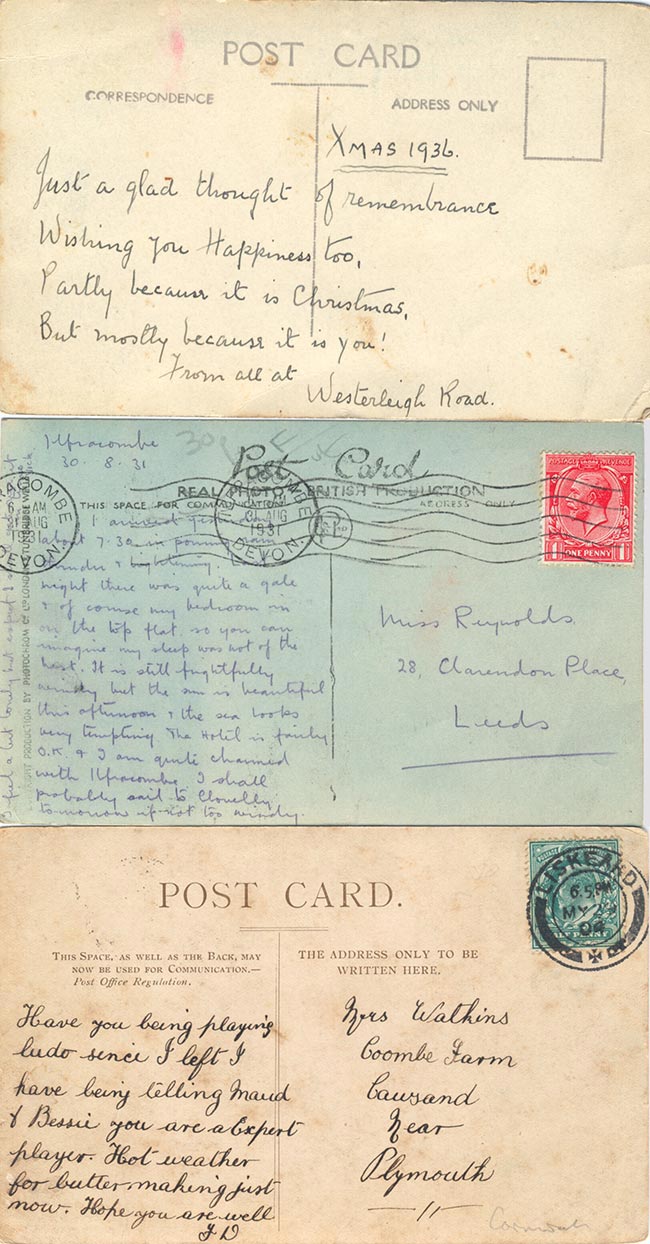 POST CARD
CORRESPONDENCE
ADDRESS ONLY
XMAS 1936.
Just a glad thought of remembrance
Wishing you Happiness too,
Partly because it is Christmas,
But mostly because it is you!
From all at
Westerleigh Road.
Ilfracombe
30.8.31
Post Card
REAL PHOTO BRITISH PRODUCTION
THIS SPACE FOR COMMUNICATION
ADDRESS ONLY
ILFRACOMBE
31 AUG
1931
DEVON.
POSTAGE REVENUE
ONE PENNY
I arrived
about 7.30 in pouring rain
thunder & lightning.
night there was quite a gale
& of course my bedroom is
on the top flat, so you can
imagine my sleep was not of the
best. It is still frightfully
windy but the sun is beautiful
this afternoon & the sea looks
very tempting. The Hotel is fairly
O.K. & I am quite charmed
with Ilfracombe. I shall
probably sail to Clovelly
tomorrow if not too windy.
I feel a bit lonely but expect I
PRODUCTION BY PHOTOCHROM Co LTD LONDON
Miss Reynolds
28, Clarendon Place,
Leeds
POST CARD.
THIS SPACE, AS WELL AS THE BACK, MAY
NOW BE USED FOR COMMUNICATION.—
Post Office Regulation.
THE ADDRESS ONLY TO BE
WRITTEN HERE.
LISKEARD
6.5 PM
MY
04
Have you being playing
ludo since I left I
have being telling Maud
& Bessie you are a Expert
player. Hot weather
for butter making just
now. Hope you are well
J D
Mrs Watkins
Coombe Farm
Cawsand
Near
Plymouth
Cornwall